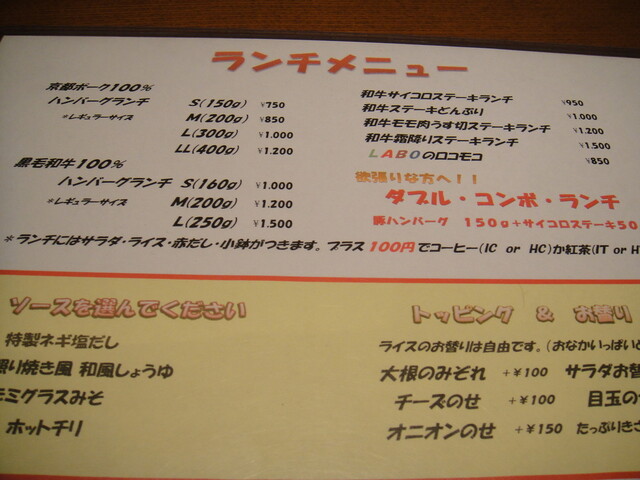 ランチメニュー
京都ポーク100%
ハンバーグランチ S(150g) ¥750
*レギュラーサイズ M(200g) ¥850
L(300g) ¥1.000
LL(400g) ¥1.200
黒毛和牛100%
ハンバーグランチ S(160g) ¥1.000
*レギュラーサイズ M(200g) ¥1.200
L(250g) ¥1.500
和牛サイコロステーキランチ ¥950
和牛ステーキどんぶり ¥1.000
和牛モモ肉うす切ステーキランチ ¥1.200
和牛霜降りステーキランチ ¥1.500
LABOのロコモコ ¥850
欲張りな方へ!!
ダブル・コンボ・ランチ
豚ハンバーグ 150g+サイコロステーキ50
*ランチにはサラダ・ライス・赤だし・小鉢がつきます。プラス100円でコーヒー(IC or HC)か紅茶(IT or H
ソースを選んでください
特製ネギ塩だし
照り焼き風 和風しょうゆ
ミグラスみそ
ホットチリ
トッピング & お替り
ライスのお替りは自由です。(おなかいっぱい
大根のみぞれ +¥100 サラダお替
チーズのせ +¥100 目玉の
オニオンのせ +¥150 たっぷりきさ